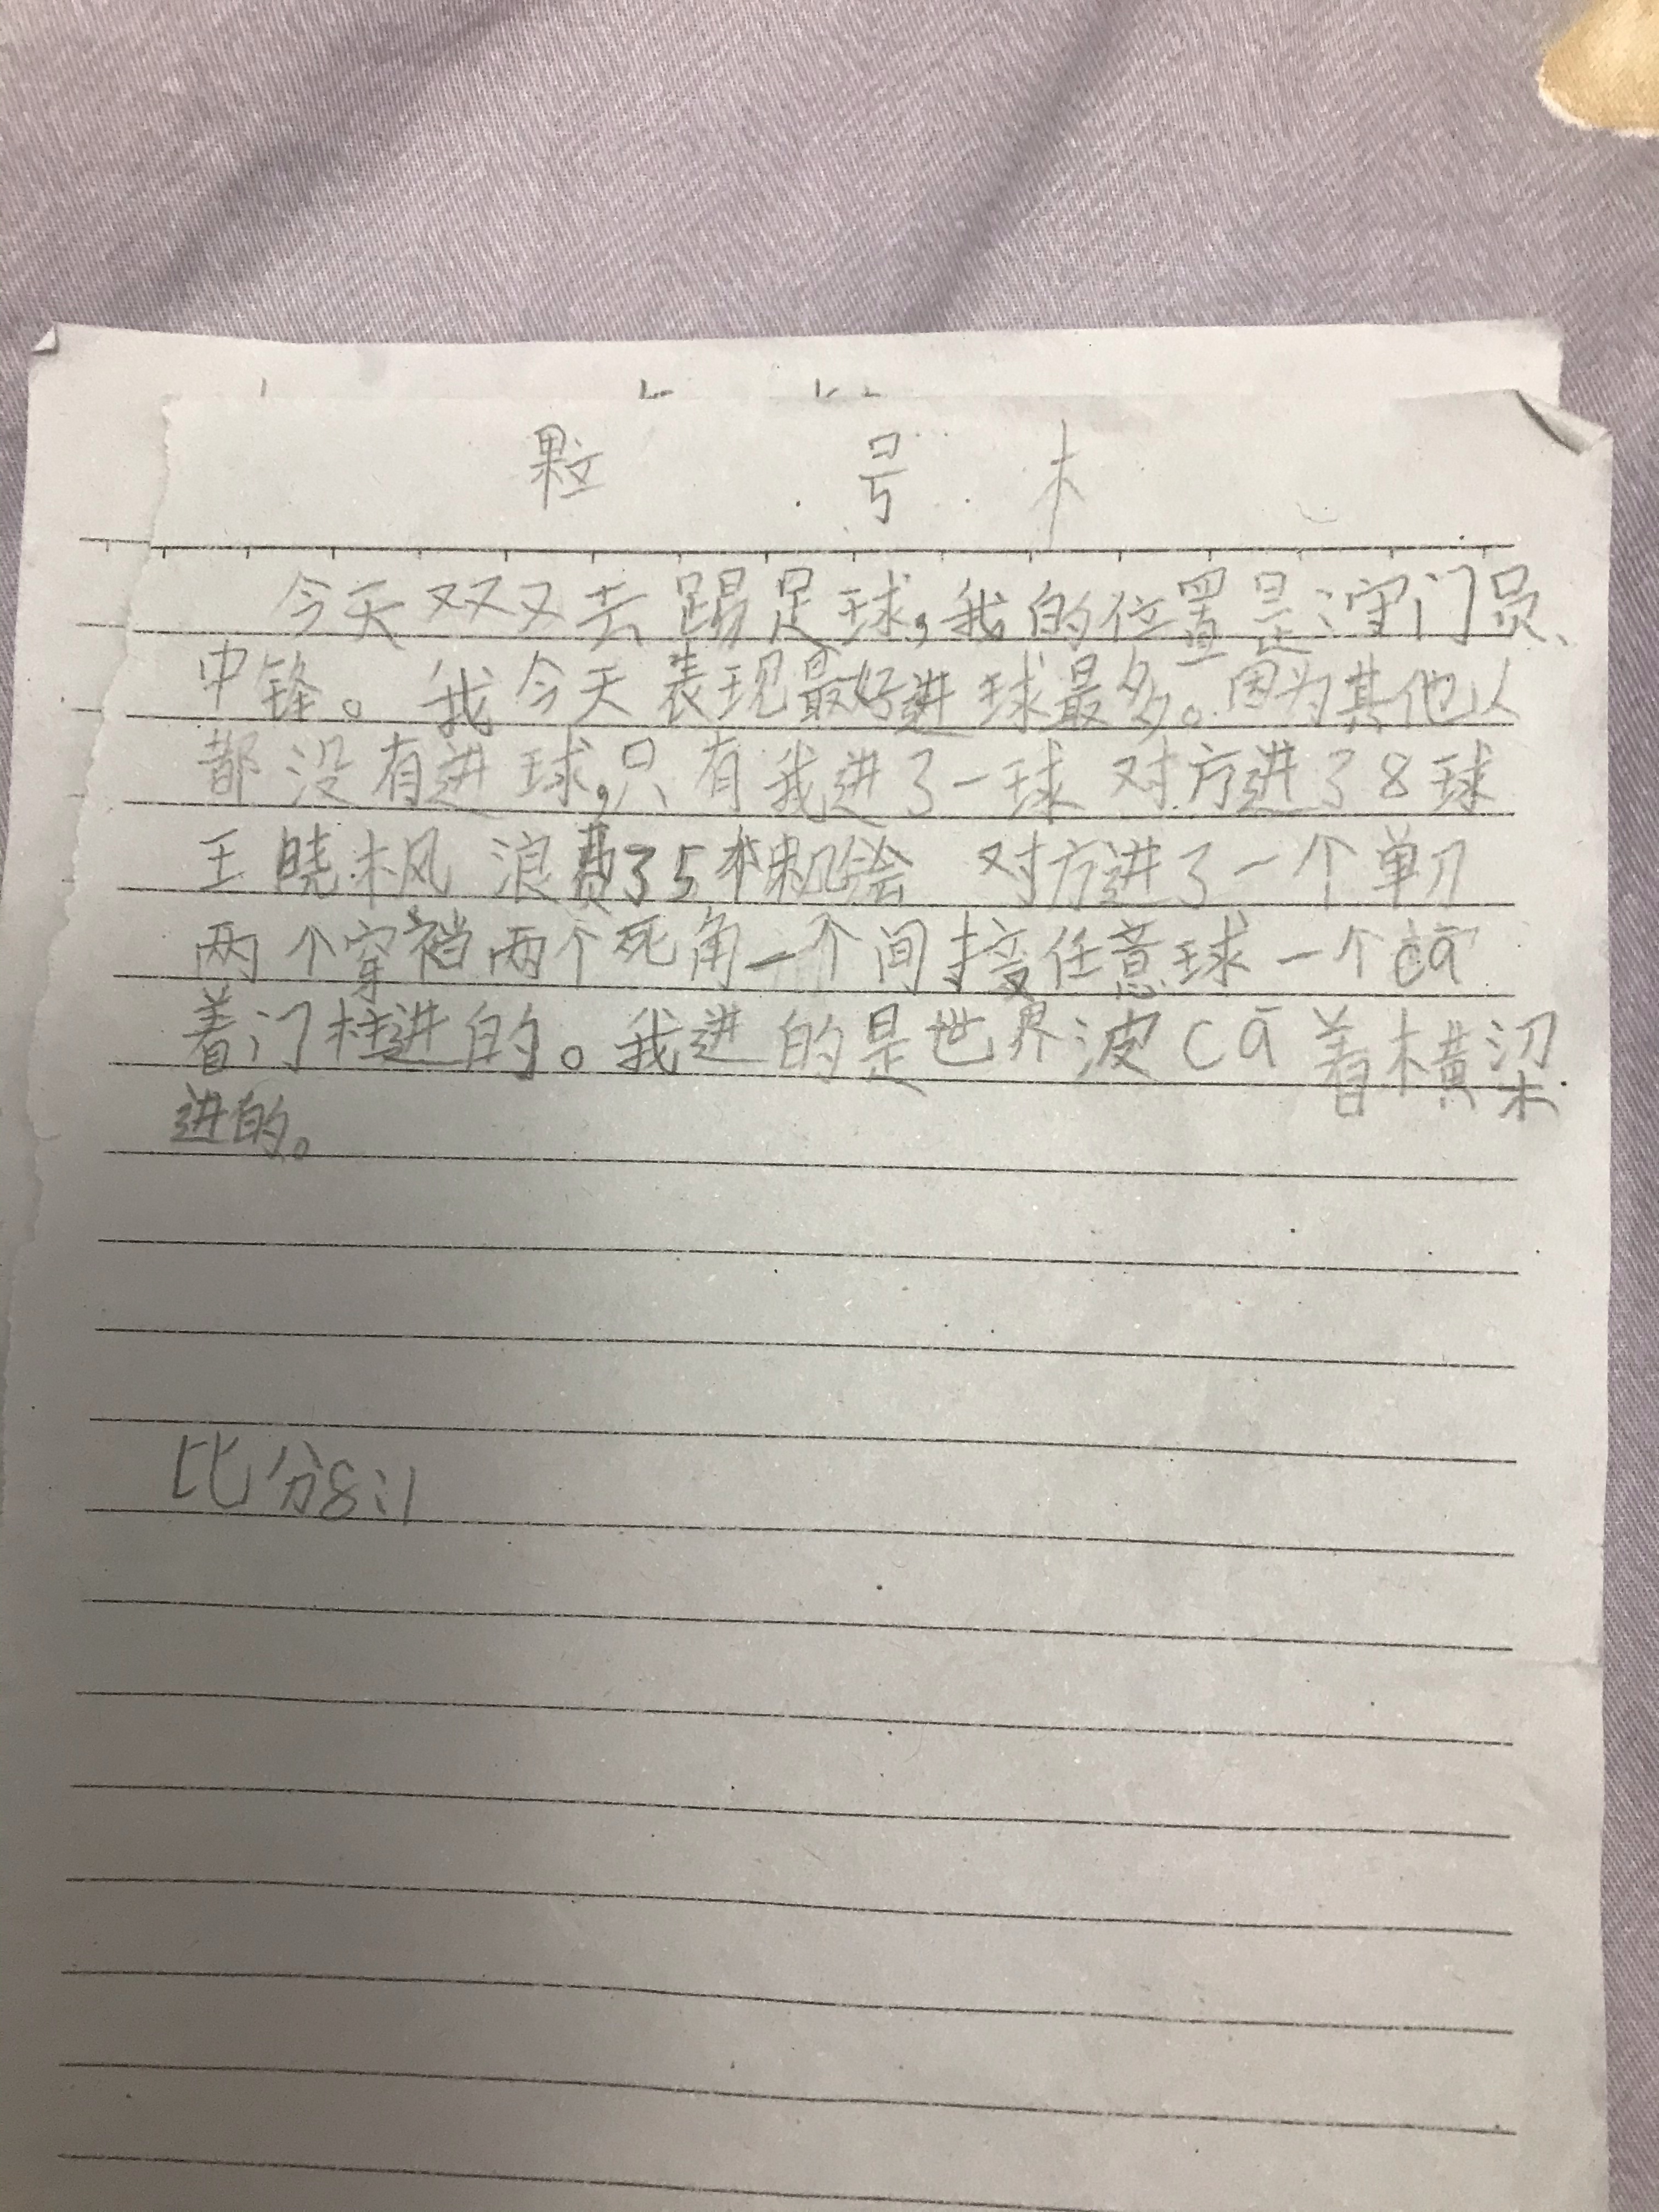 号
今天双双又去踢足球，我的位置是守门员、
中锋。我今天表现最好进球最多。因为其他人
都没有进球，只有我进了一球 对方进了8球
王晓枫 浪费了5 机会 对方进了一个单刀
两个穿裆两个死角一个间接任意球一个cā
着门柱进的。我进的是世界波cā着横梁
进的。
比分8:1